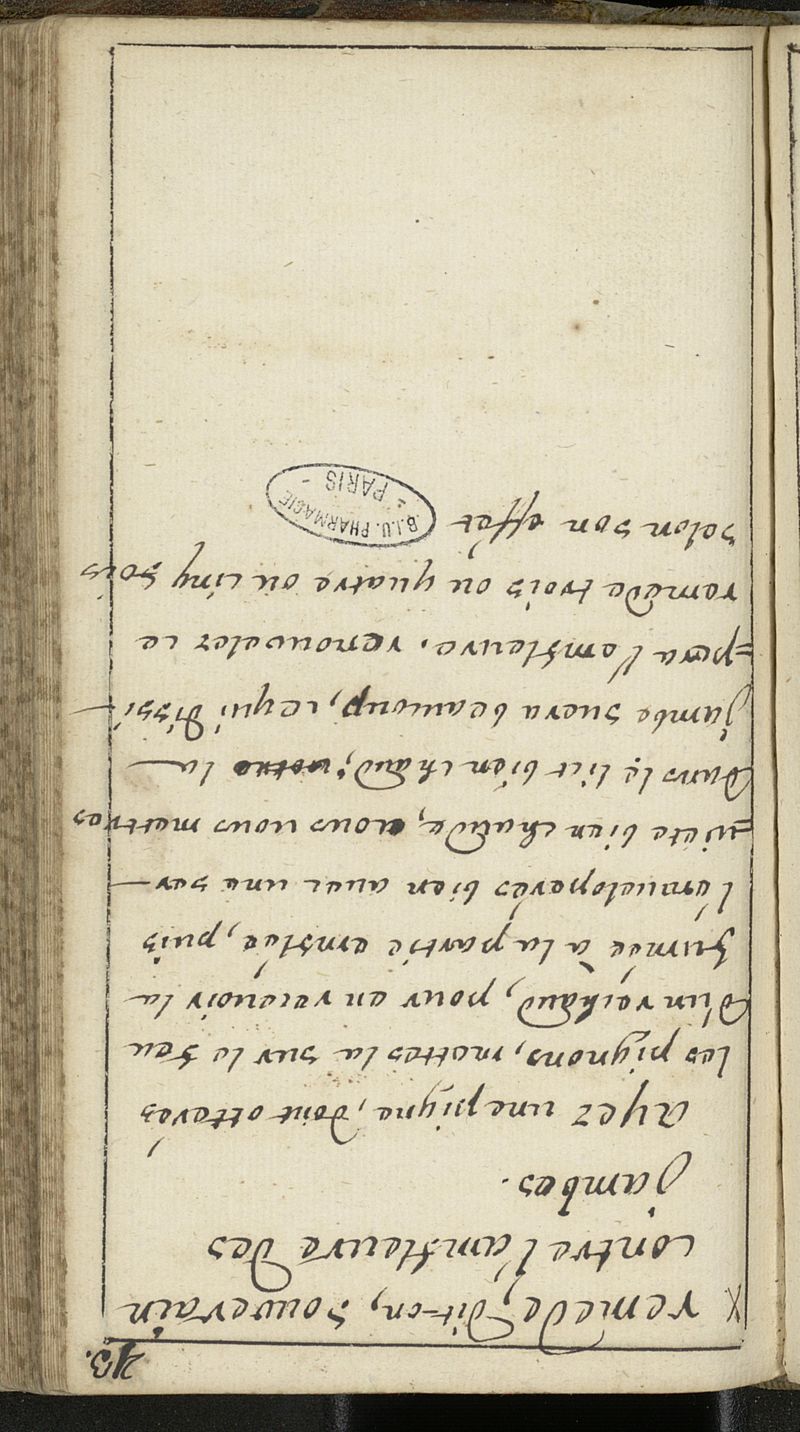 213.
x remede, dit-on, souverain
contre l'amfleure des
jambes.
Ayez une pigne, dont otterés
les pignons, mettes la sur le feu
d'un rechaud, pour en recevoir la
fumée à la partie emflée, puis
l'envelopperés bien avec une ser-
=viete bien chaude, vous vous mettres
dans le lict bien chaud; la
jambe suera beaucoup, ce qui dissi-
=pera l'emfleure. renouveler ce
remede trois ou quatre ou cinq fois
selon son effet
B.I.U. PHARMACIE
- PARIS -